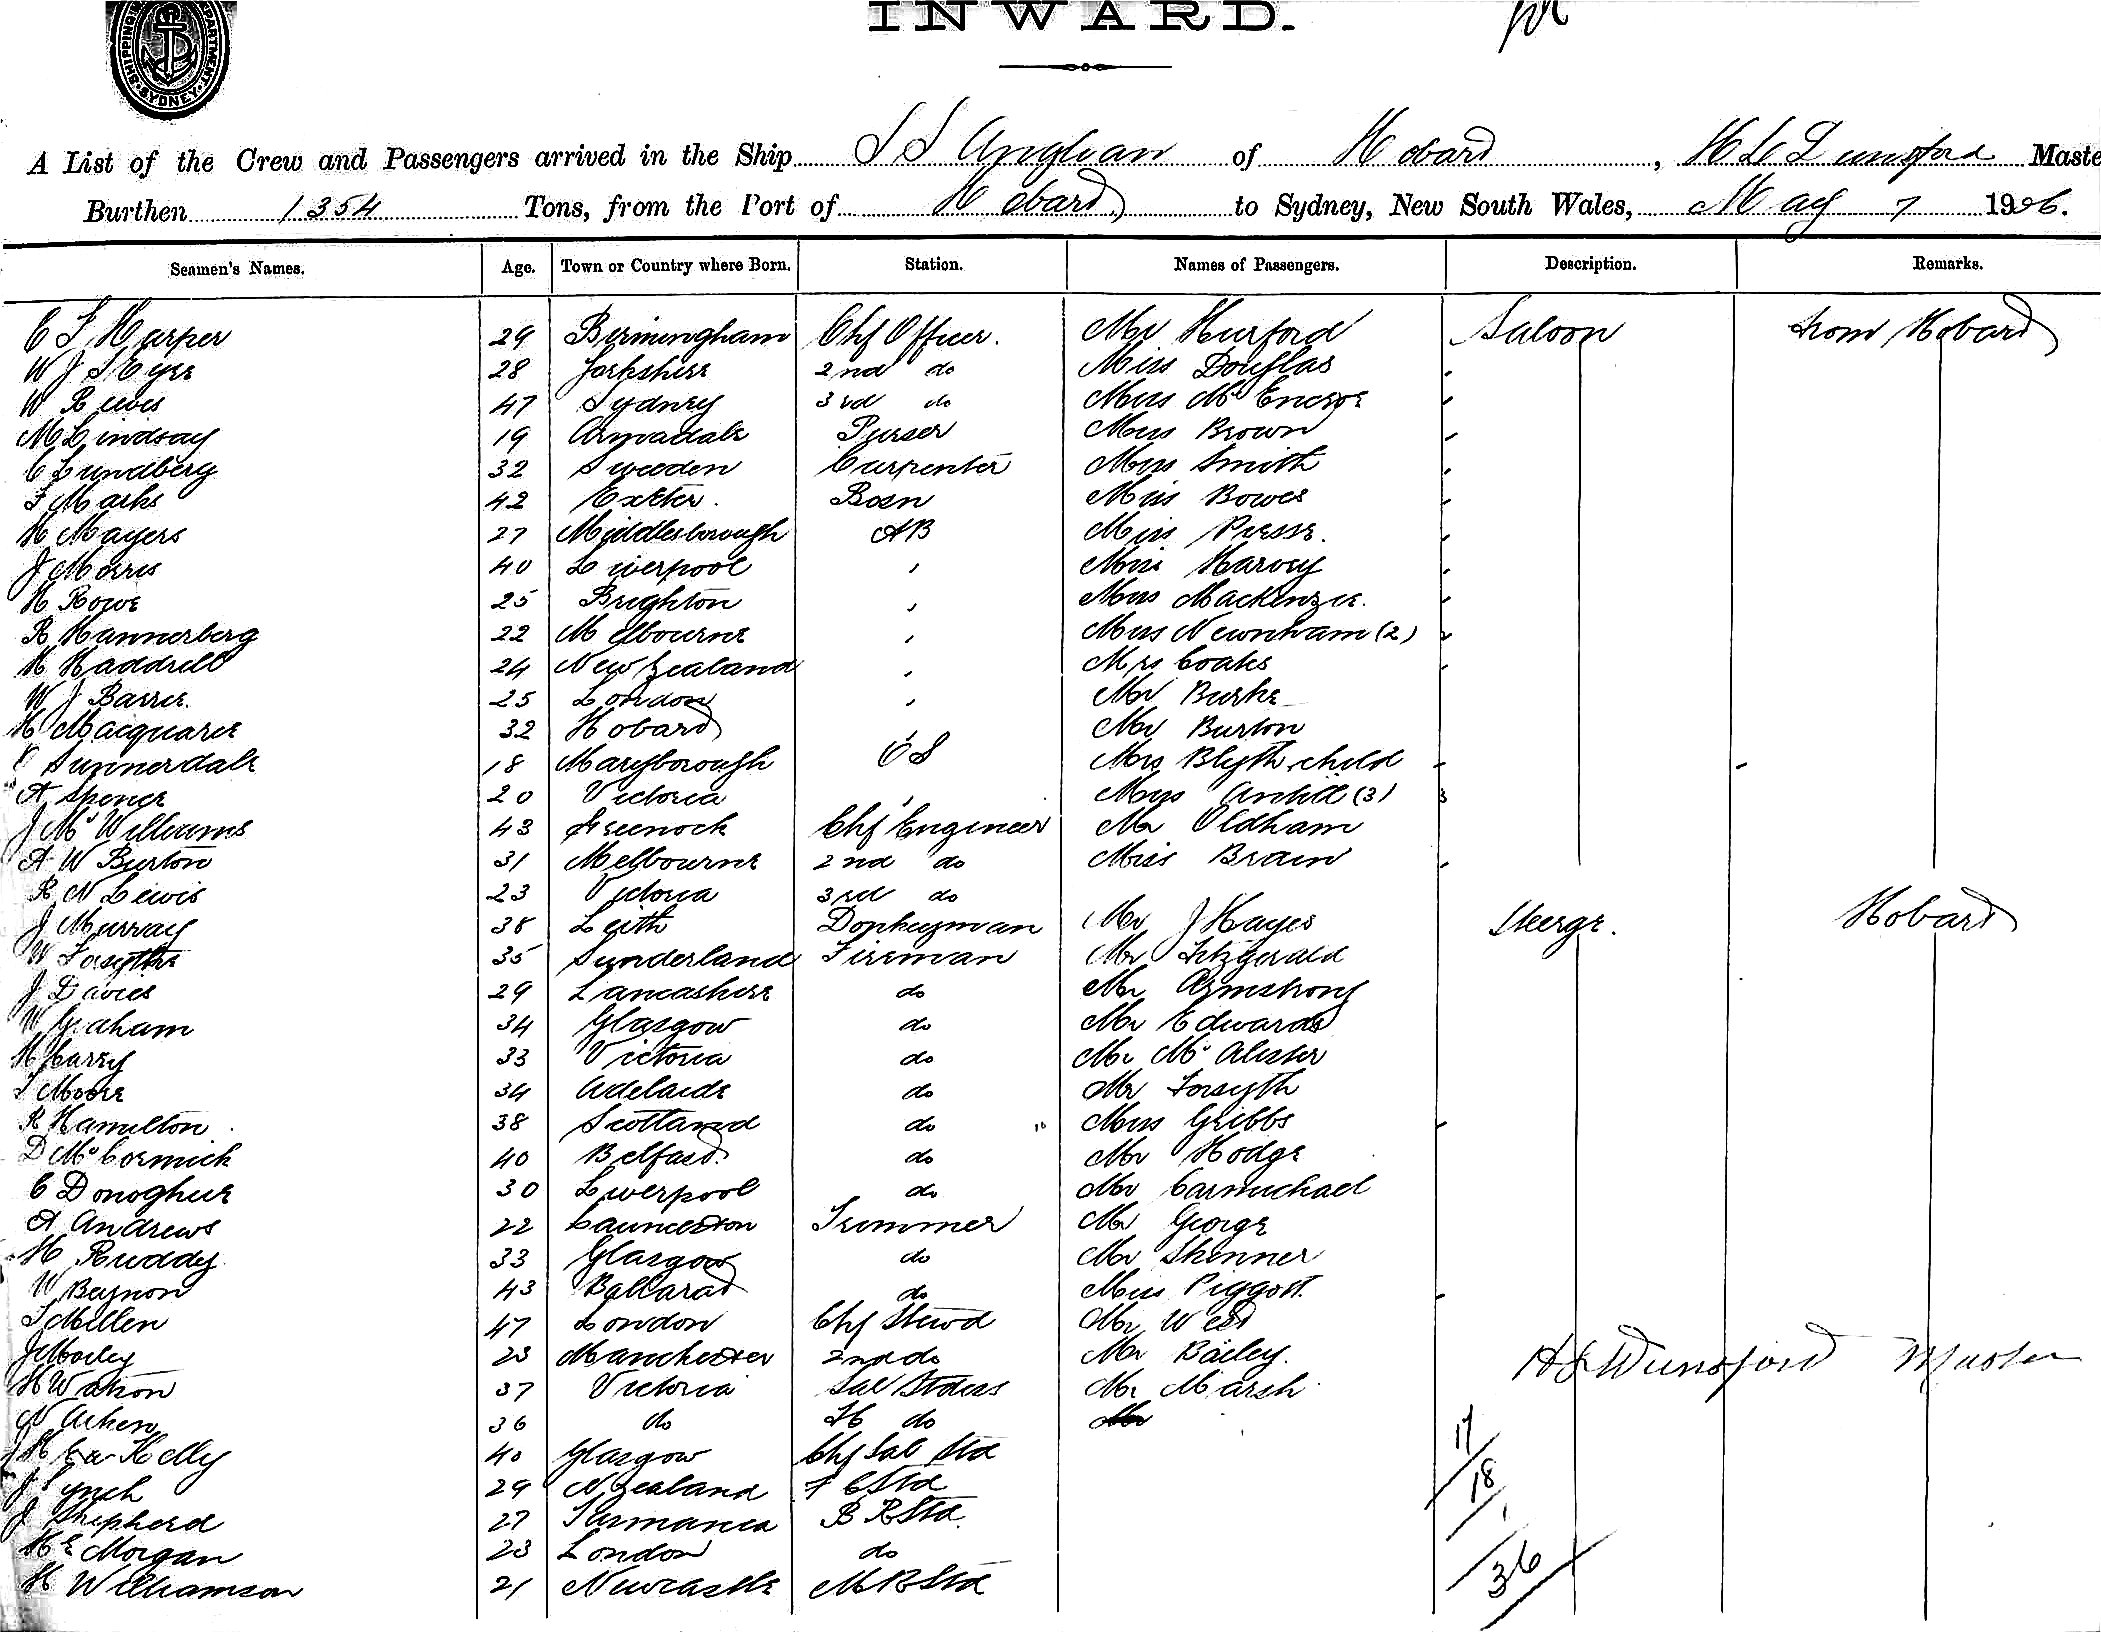 SHIPPING DEPARTMENT SYDNEY
INWARD.
A List of the Crew and Passengers arrived in the Ship S S Anglian of Hobard, Maste
Burthen 1354 Tons, from the Port of Hobard to Sydney, New South Wales, May 7 1906.
Seamen's Names. Age. Town or Country where Born. Station. Names of Passengers. Description. Remarks.
C S Harper 29 Birmingham Chf Officer. Mr Hurford Saloon from Hobard
W J S Eyre 28 Yorkshire 2nd do Miss Douglas
W Rewis 47 Sydney 3rd do Miss
M Lindsay 19 Armadale Purser Miss Brown
C Lundberg 32 Sweeden Carpenter Miss Smith
F Marks 42 Exeter. Bosn Miss Bowes
H Mayers 27 Middlesborough AB Miss Presse.
J Morris 40 Liverpool , Miss Harvey
H Rowe 25 Brighton , Miss Mackenzie.
R Hannerberg 22 Melbourne , Miss Newnham (2)
H Haddrell 24 New Zealand , Mrs Coaks
W J Barrer. 25 London , Mr Burke
H Macquarie 32 Hobard , Mr Burton
C Sunnerdale 18 Maryborough OS Mrs Blyth child
A Spence 20 Victoria , Miss Antill (3)
J Mc Williams 43 Greenock Chf Engineer Mr Oldham
A W Burton 31 Melbourne 2nd do Miss Brain
R N Lewis 23 Victoria 3rd do
J Murray 38 Leith Donkeyman Mr J Hayes Steerge. Hobard
W Forsythe 35 Sunderland Fireman Mr Fitzgerald
J Davies 29 Lancashire do Mr Armstrong
W Graham 34 Glasgow do Mr Edwards
H Carry 33 Victoria do Mr Mc Alister
S Moore 34 Adelaide do Mr Forsyth
R Hamilton 38 Scotland do Miss Gribbs
D Mc Cormick 40 Belfast. do Mr Hodge
C Donoghue 30 Liverpool do Mr Carmichael
A Andrews 22 Launceston Trimmer Mr George
H Ruddy 33 Glasgow do Mr Skinner
W Beynon 43 Ballarat do Miss Piggott.
S Millen 47 London Chf Stewd Mr West
J Morley 23 Manchester 2nd do Mr Bailey.
H Watson 37 Victoria Sal Stdess Mr Marsh
Aiken 36 do do Mr
Kelly 40 Glasgow Chf Sal Std
J Lynch 29 N Zealand Std
J Shepherd 27 Tasmania B R Std.
Morgan 23 London do
H Williamson 21 Newcastle M R Std
Master
17
18
1
36